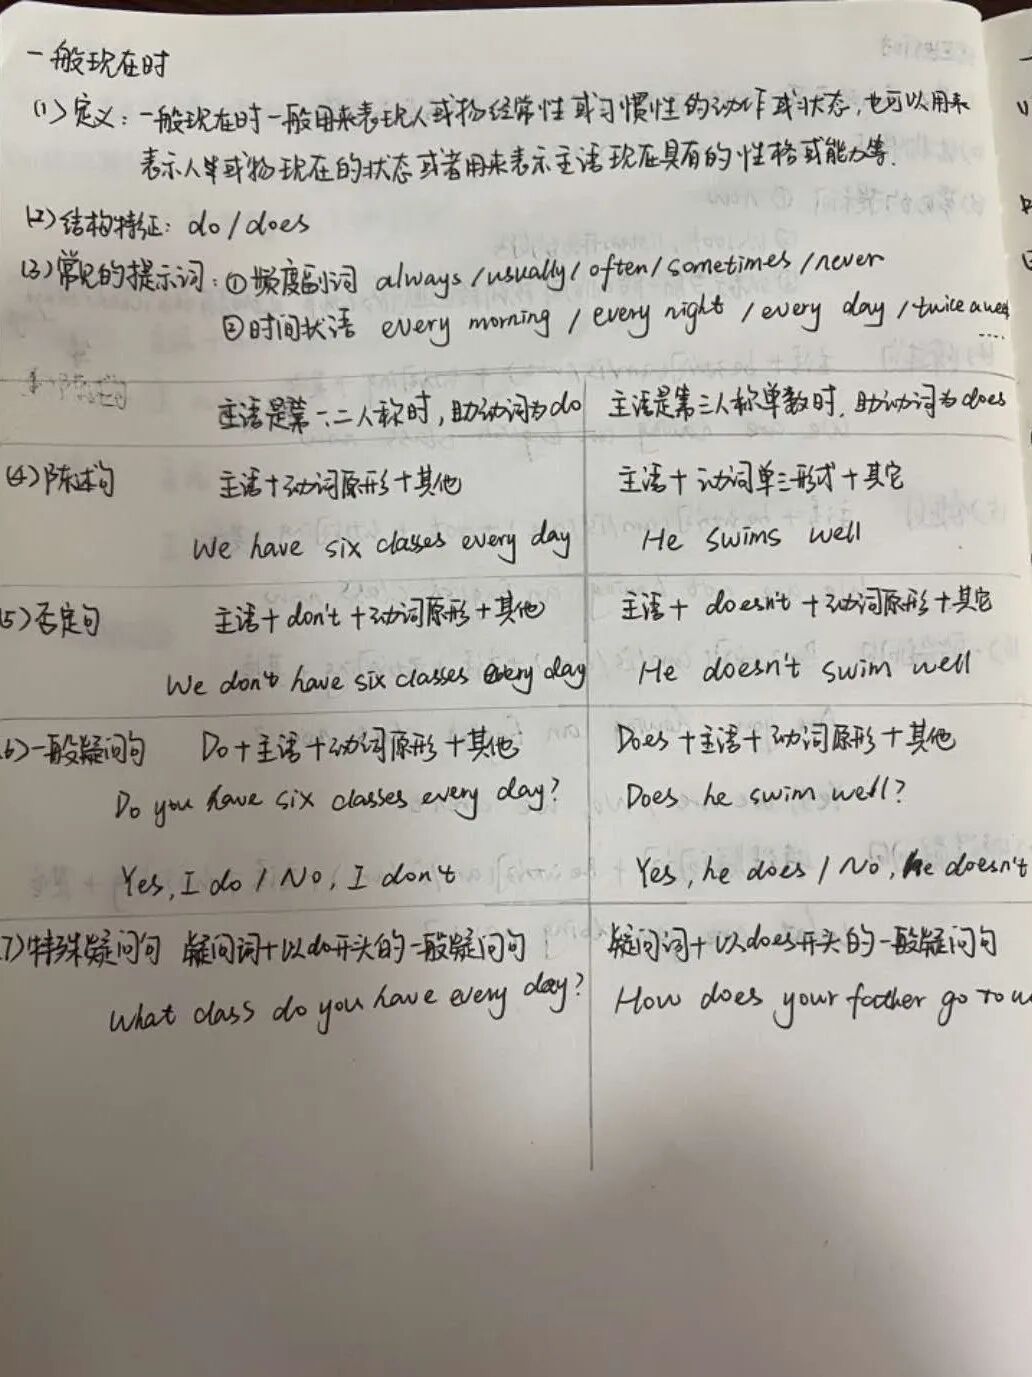 一般现在时
(1)定义：一般现在时一般用来表现人或物经常性或习惯性的动作或状态，也可以用来
表示人或物现在的状态或者用来表示主语现在具有的性格或能力等.
(2)结构特征：do/does
(3)常见的提示词：①频度副词 always/usually/often/sometimes/never
②时间状语 every morning/every night/every day/twice a
....
主语是第一、二人称时，助动词为do 主语是第三人称单数时，助动词为does
(4)陈述句 主语+动词原形+其他 主语+动词单三形式+其它
We have six classes every day He swims well
5)否定句 主语+don't+动词原形+其他 主语+doesn't+动词原形+其它
We don't have six classes every day He doesn't swim well
6)一般疑问句 Do+主语+动词原形+其他 Does+主语+动词原形+其他
Do you have six classes every day? Does he swim well?
Yes, I do/No, I don't Yes, he does/No, he doesn't
7)特殊疑问句 疑问词+以do开头的一般疑问句 疑问词+以does开头的一般疑问句
What class do you have every day? How does your father go to